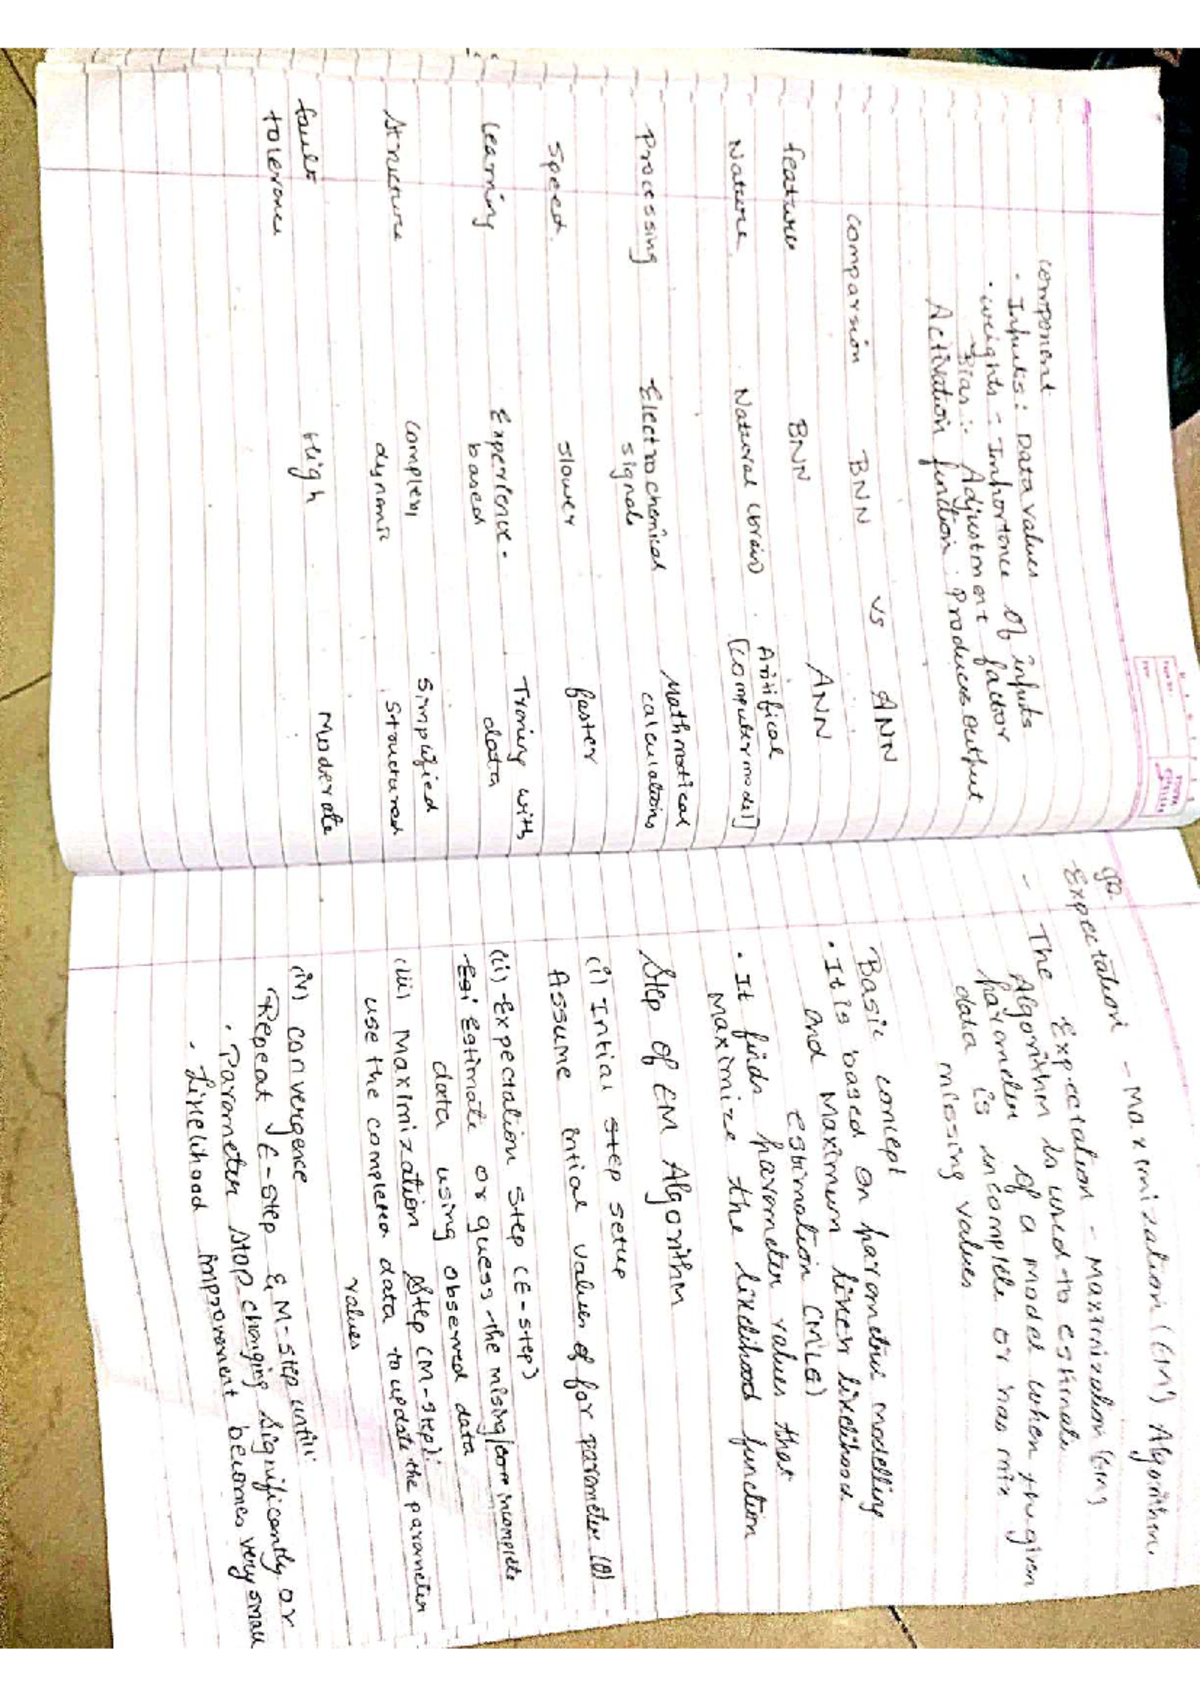 component
· Inputs : Data values
· weights - Inportance of inputs
Bias :- Adjustment factor
Activation function : Produces output
comparsion BNN vs ANN
feature BNN ANN
Nature Natural (brain) Aritifical
[computer model]
Processing Electrochemical Mathmatical
signals calculations
speed slower faster
learning Experience - Traning with
based data
structure complex, simplified
dynamic structured
fault High Moderate
tolerance
Expectation - Maximization (EM) Algorithm
- The Expectation - Maximization (EM)
Algorithm is used to estimate
parameter of a model when the given
data is incomplete or has mis
missing values
Basic concept
· It is based on parametric modelling
and Maximum likelihood
estimation (MLE)
· It finds parameter values that
maximize the likelihood function
Step of EM Algorithm
(i) Intial step setup
Assume intial values of for parameter (θ)
(ii) Expectation step (E-step)
Estimate or guess the mising/ incomplete
data using observed data
(iii) Maximization Step (M-step):
use the completed data to update the parameter
values
(iv) convergence
Repeat E-step & M-step until:
· Parameter stop changing significantly or
· Likelihood improvement becomes very small